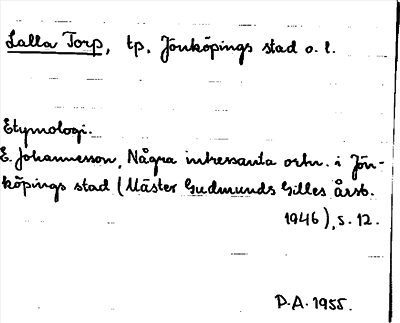 Lalla Torp, tp, Jönköpings stad o. l.
Etymologi.
E. Johannesson, Några intressanta ortn. i Jön-
köpings stad (Mäster Gudmunds Gilles årsb.
1946), s. 12.
P.A. 1955.